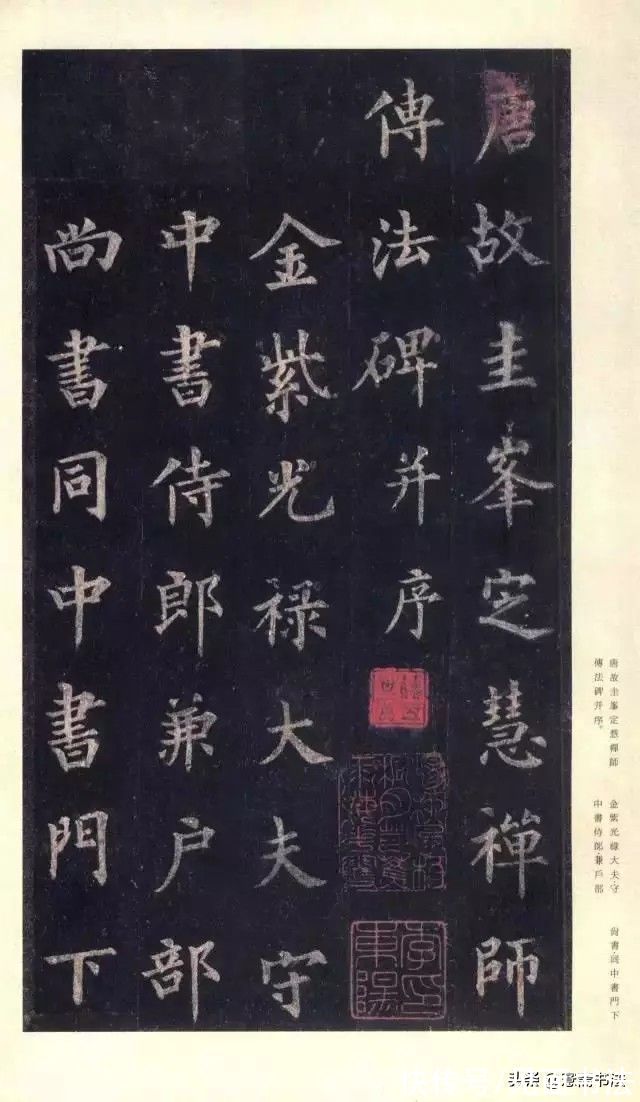 唐故圭峯定慧禪師
傳法碑并序
金紫光祿大夫守
中書侍郎兼户部
尚書同中書門下
唐故圭峯定慧禪師
傳法碑并序。
金紫光祿大夫守
中書侍郎兼戶部
尚書同中書門下